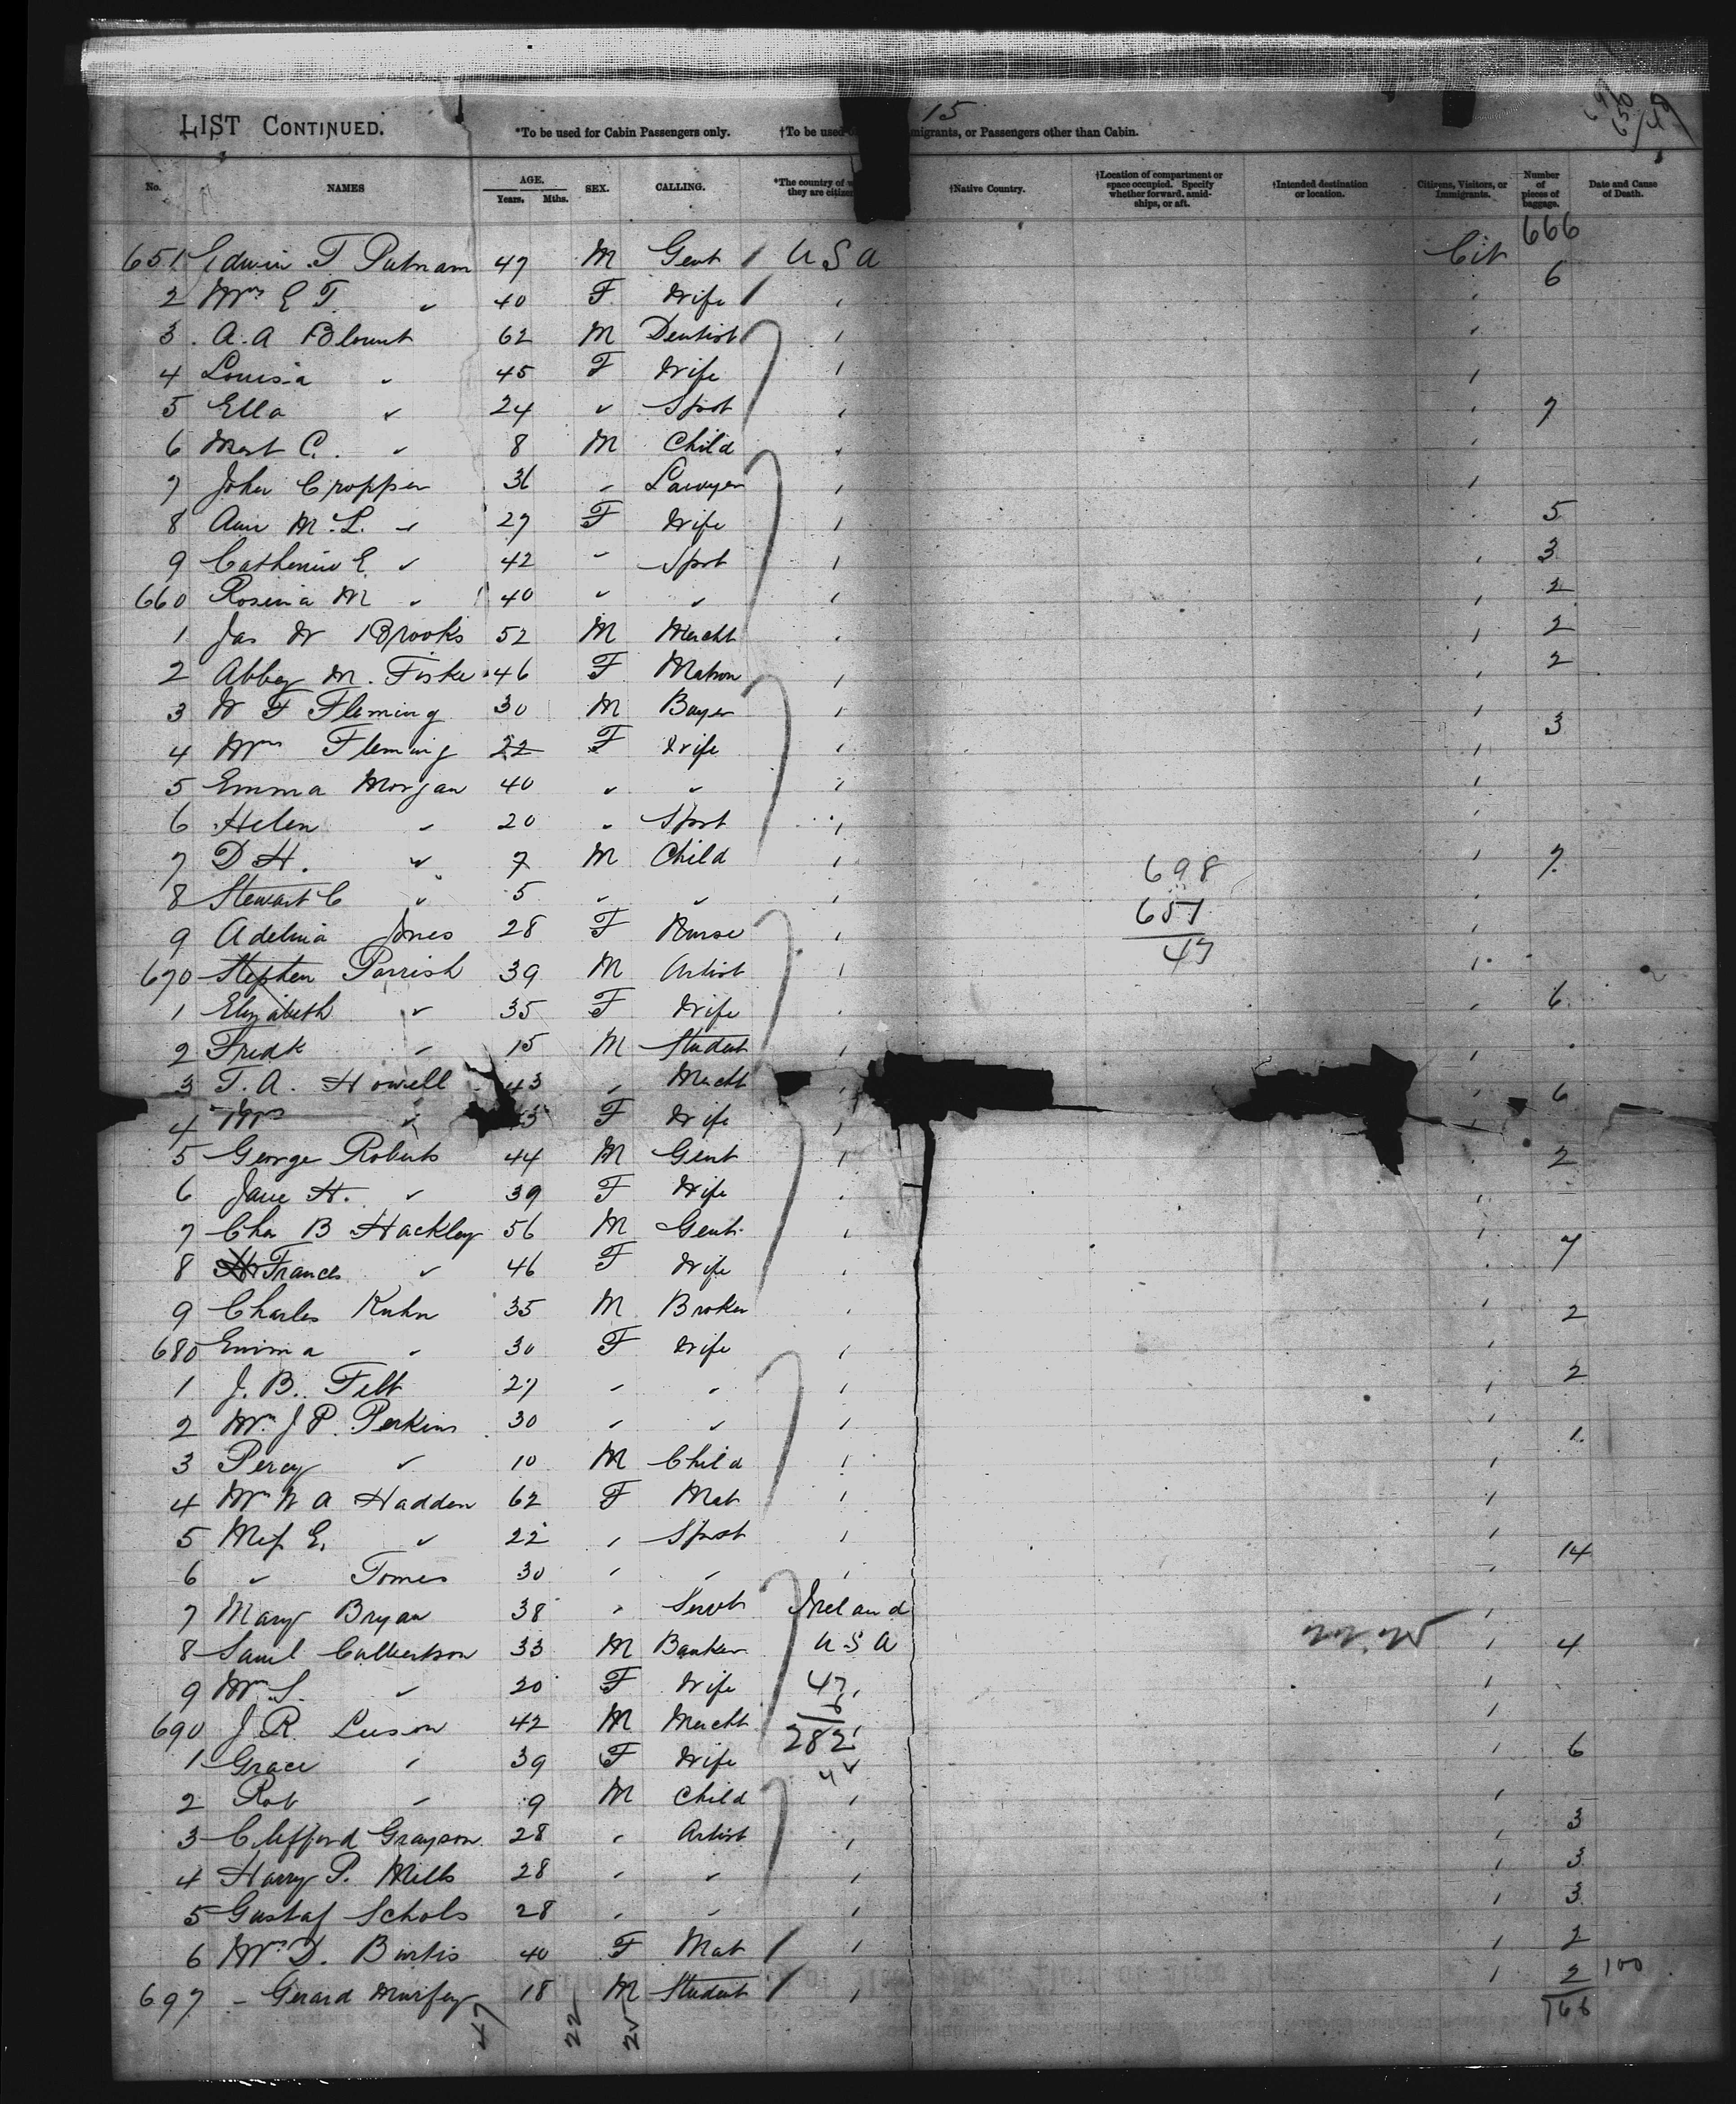 15
LIST CONTINUED. *To be used for Cabin Passengers only. †To be used migrants, or Passengers other than Cabin.
No. NAMES AGE. Years. Mths. SEX. CALLING. *The country of they are citizen †Native Country. †Location of compartment or space occupied. Specify whether forward, amidships, or aft. †Intended destination or location. Citizens, Visitors, or Immigrants. Number of pieces of baggage. Date and Cause of Death.
666
651 Edwin T Putnam 47 M Gent U S A Cit 6
2 Mrs E T. " 40 F Wife "
3 A. A Blount 62 M Dentist "
4 Louisa " 45 F Wife "
5 Ella " 24 " Spst " 7
6 C. " 8 M Child "
7 John Cropper 36 " Lawyer "
8 M. L. " 27 F Wife " 5
9 Catherine E. " 42 " Spst " 3
660 Rosina M " 40 " " " 2
1 Jas W Brooks 52 M Mercht " 2
2 Abbey M. Fiske 46 F Matron " 2
3 W F Fleming 30 M Buyer " 3
4 Mrs Fleming 22 F Wife "
5 Emma Morgan 40 " " "
6 Helen " 20 " Spst "
7 D H. " 7 M Child " 7
8 Stewart C " 5 " " "
698
651
47
9 Adelina Jones 28 F Nurse "
670 Stephen Parrish 39 M Artist "
1 Elizabeth " 35 F Wife " 6
2 Fredk " 15 M Student "
3 T. A. Howell 43 " Mercht " 6
4 Mrs " F Wife "
5 George Roberts 44 M Gent " 2
6 Jane H. " 39 F Wife "
7 Chas B Hackley 56 M Gent " 7
8 Frances " 46 F Wife "
9 Charles Kuhn 35 M Broker " 2
680 Emma " 30 F Wife "
1 J. B. Felt 27 " " " 2
2 Mrs J P. Perkins 30 " " " 1
3 Percy " 10 M Child "
4 Mrs W A Hadden 62 F Mat "
5 Miss E. " 22 " Spst " 14
6 " Tomes 30 " " "
7 Mary Bryan 38 " Servt Ireland
8 Saml Culbertson 33 M Banker U S A 4
9 Mrs S. " 20 F Wife "
47
6
282
690 J. R. Leeson 42 M Mercht "
1 Grace " 39 F Wife " 6
2 Rob " 9 M Child "
3 Clifford Grayson 28 " Artist " 3
4 Harry P. Mills 28 " " " 3
5 Gustaf Schols 28 " " " 3
6 Mrs D. Burtis 40 F Mat " 2
697 Gerard 18 M Student " 2 100
766
47 22 25